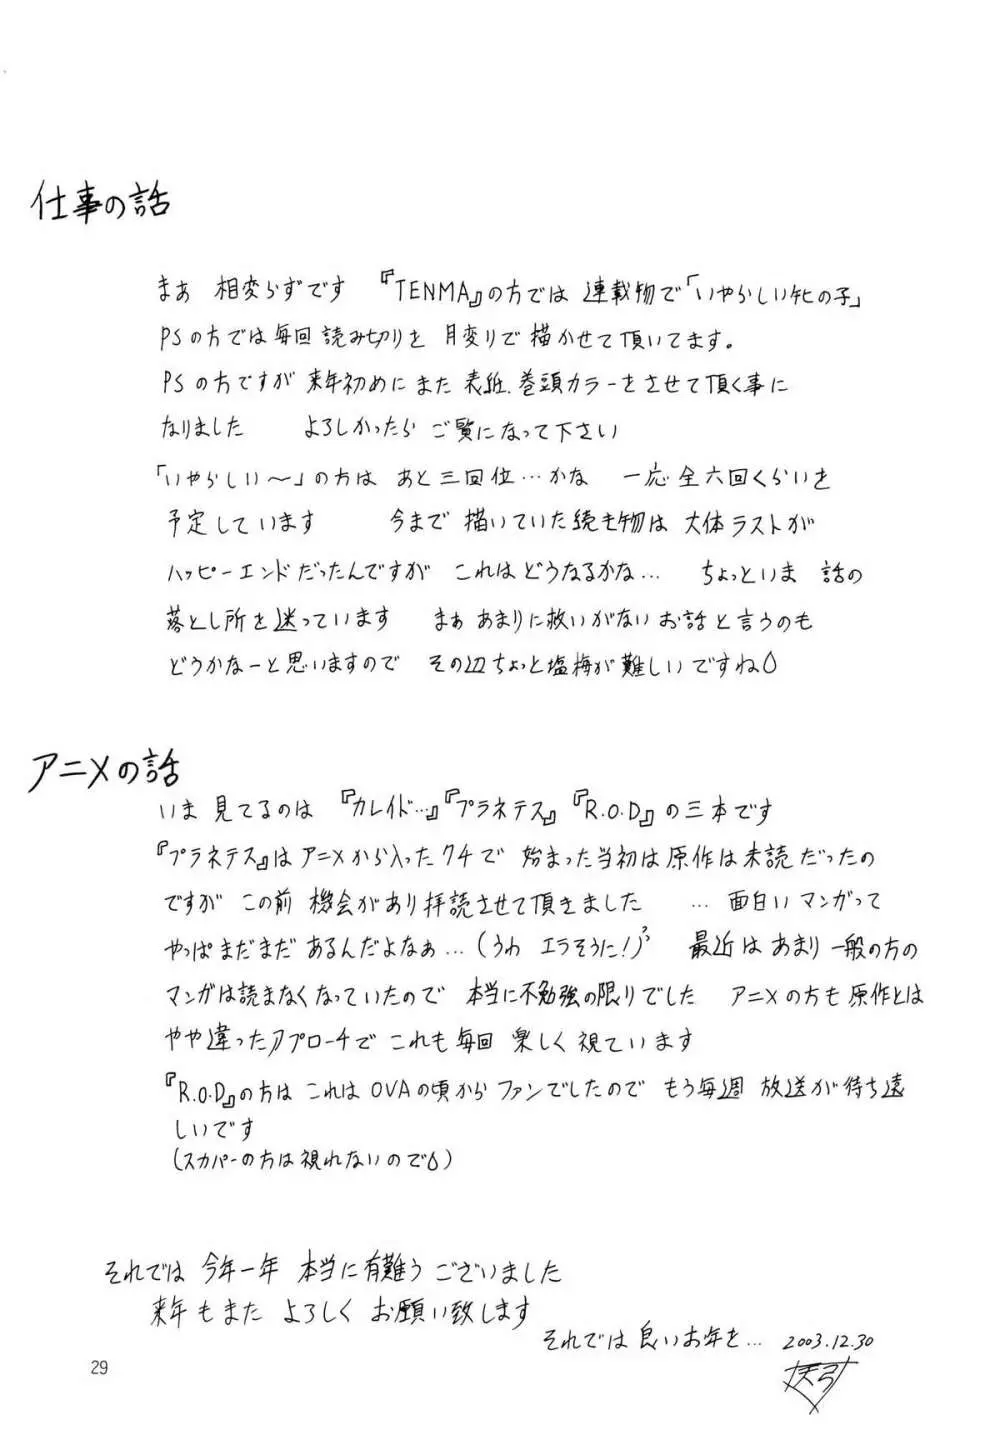 仕事の話
まあ 相変らずです 『TENMA』の方では 連載物で「いやらしい牝の子」
PSの方では毎回読み切りを 月変りで描かせて頂いてます。
PSの方ですが 来年初めにまた 表紙.巻頭カラーをさせて頂く事に
なりました よろしかったら ご覧になって下さい
「いやらしい〜」の方は あと三回位…かな 一応全六回くらいを
予定しています 今まで描いていた続き物は 大体ラストが
ハッピーエンドだったんですが これはどうなるかな… ちょっといま 話の
落とし所を迷っています まぁ あまりに救いがないお話と言うのも
どうかなーと思いますので その辺ちょっと塩梅が難しいですね
アニメの話
いま 見てるのは 『カレイド…』『プラネテス』『R.O.D』の三本です
『プラネテス』はアニメから入ったクチで 始まった当初は原作は未読だったの
ですが この前 機会があり拝読させて頂きました … 面白いマンガって
やっぱまだまだ あるんだよなぁ…(うわ エラそうに!) 最近は あまり一般の方の
マンガは読まなくなっていたので 本当に不勉強の限りでした アニメの方も原作とは
やや違ったアプローチで これも毎回 楽しく視ています
『R.O.D』の方は これはOVAの頃からファンでしたので もう毎週 放送が待ち遠
しいです
(スカパーの方は視れないので)
それでは 今年一年 本当に有難うございました
来年もまた よろしく お願い致します
それでは良いお年を… 2003.12.30
29